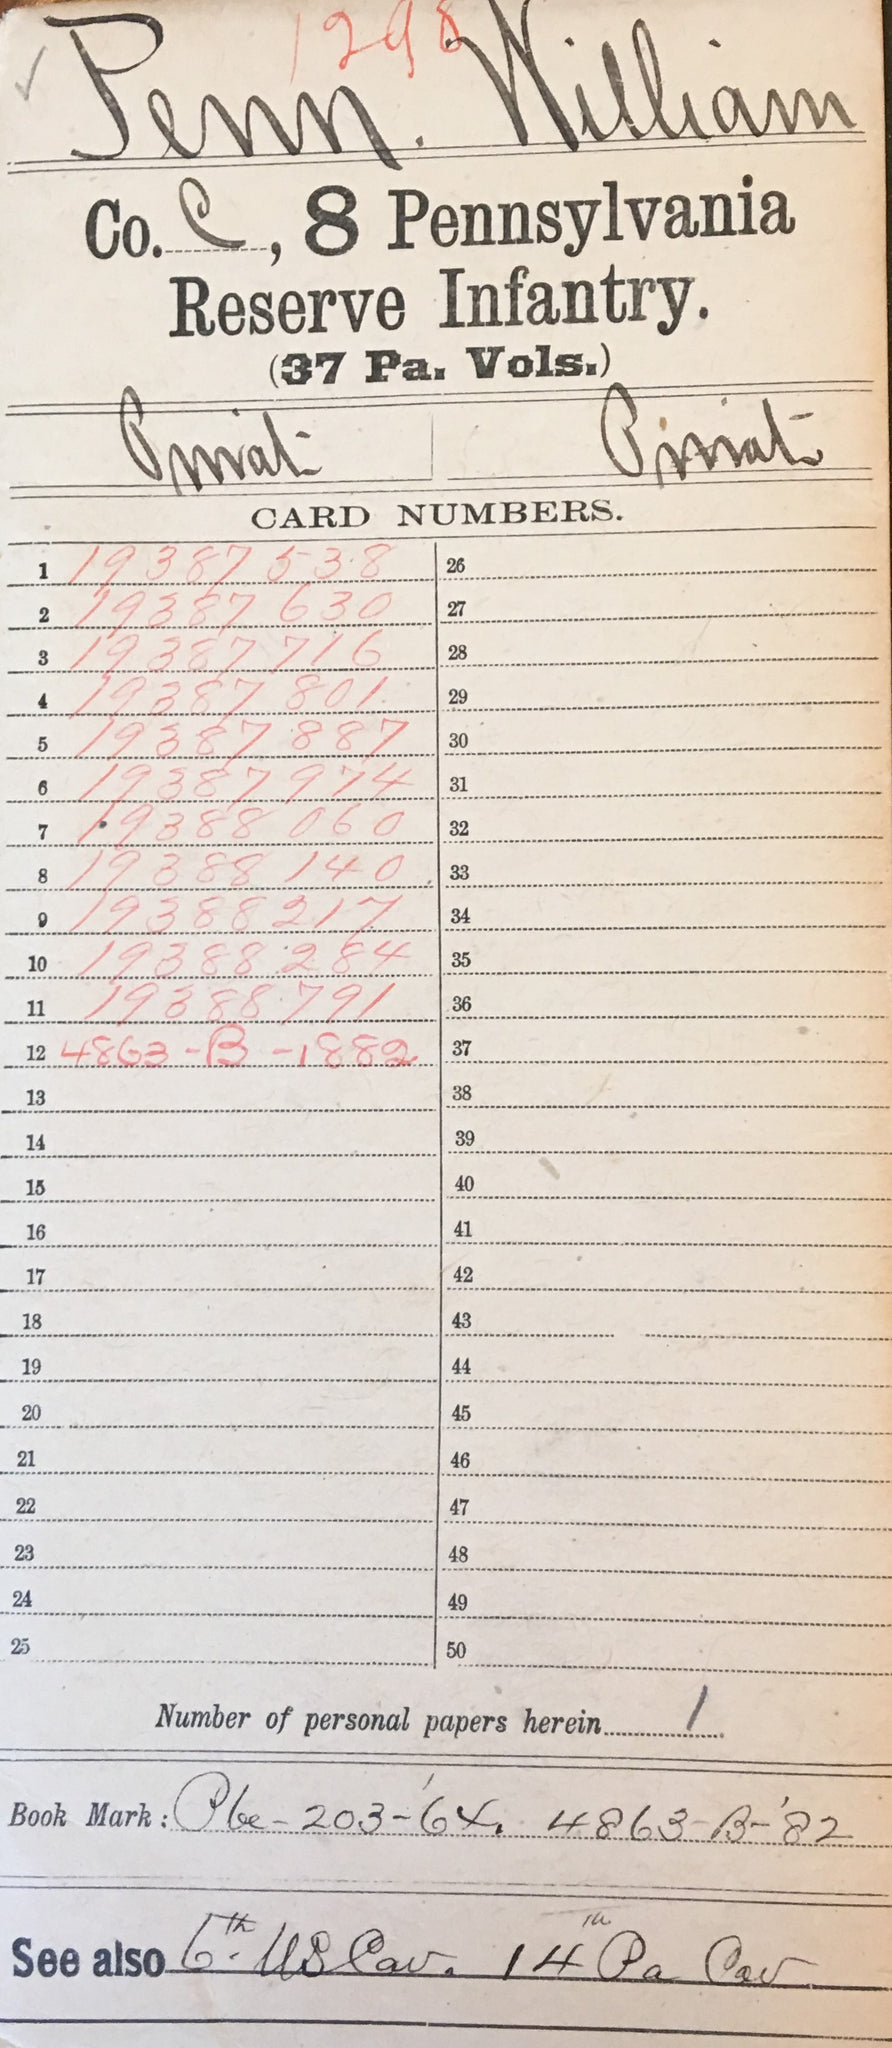 1298
Penn. William
Co. C, 8 Pennsylvania
Reserve Infantry.
(37 Pa. Vols.)
Privat Privat
CARD NUMBERS.
1 19387538 26
2 19387630 27
3 19387716 28
4 19387801 29
5 19387887 30
6 19387974 31
7 19388060 32
8 19388140 33
9 19388217 34
10 19388284 35
11 19388791 36
12 4863-B-1882 37
13 38
14 39
15 40
16 41
17 42
18 43
19 44
20 45
21 46
22 47
23 48
24 49
25 50
Number of personal papers herein 1
Book Mark: 203-'64. 4863-B-'82
See also 6th US Cav. 14th Pa Cav.